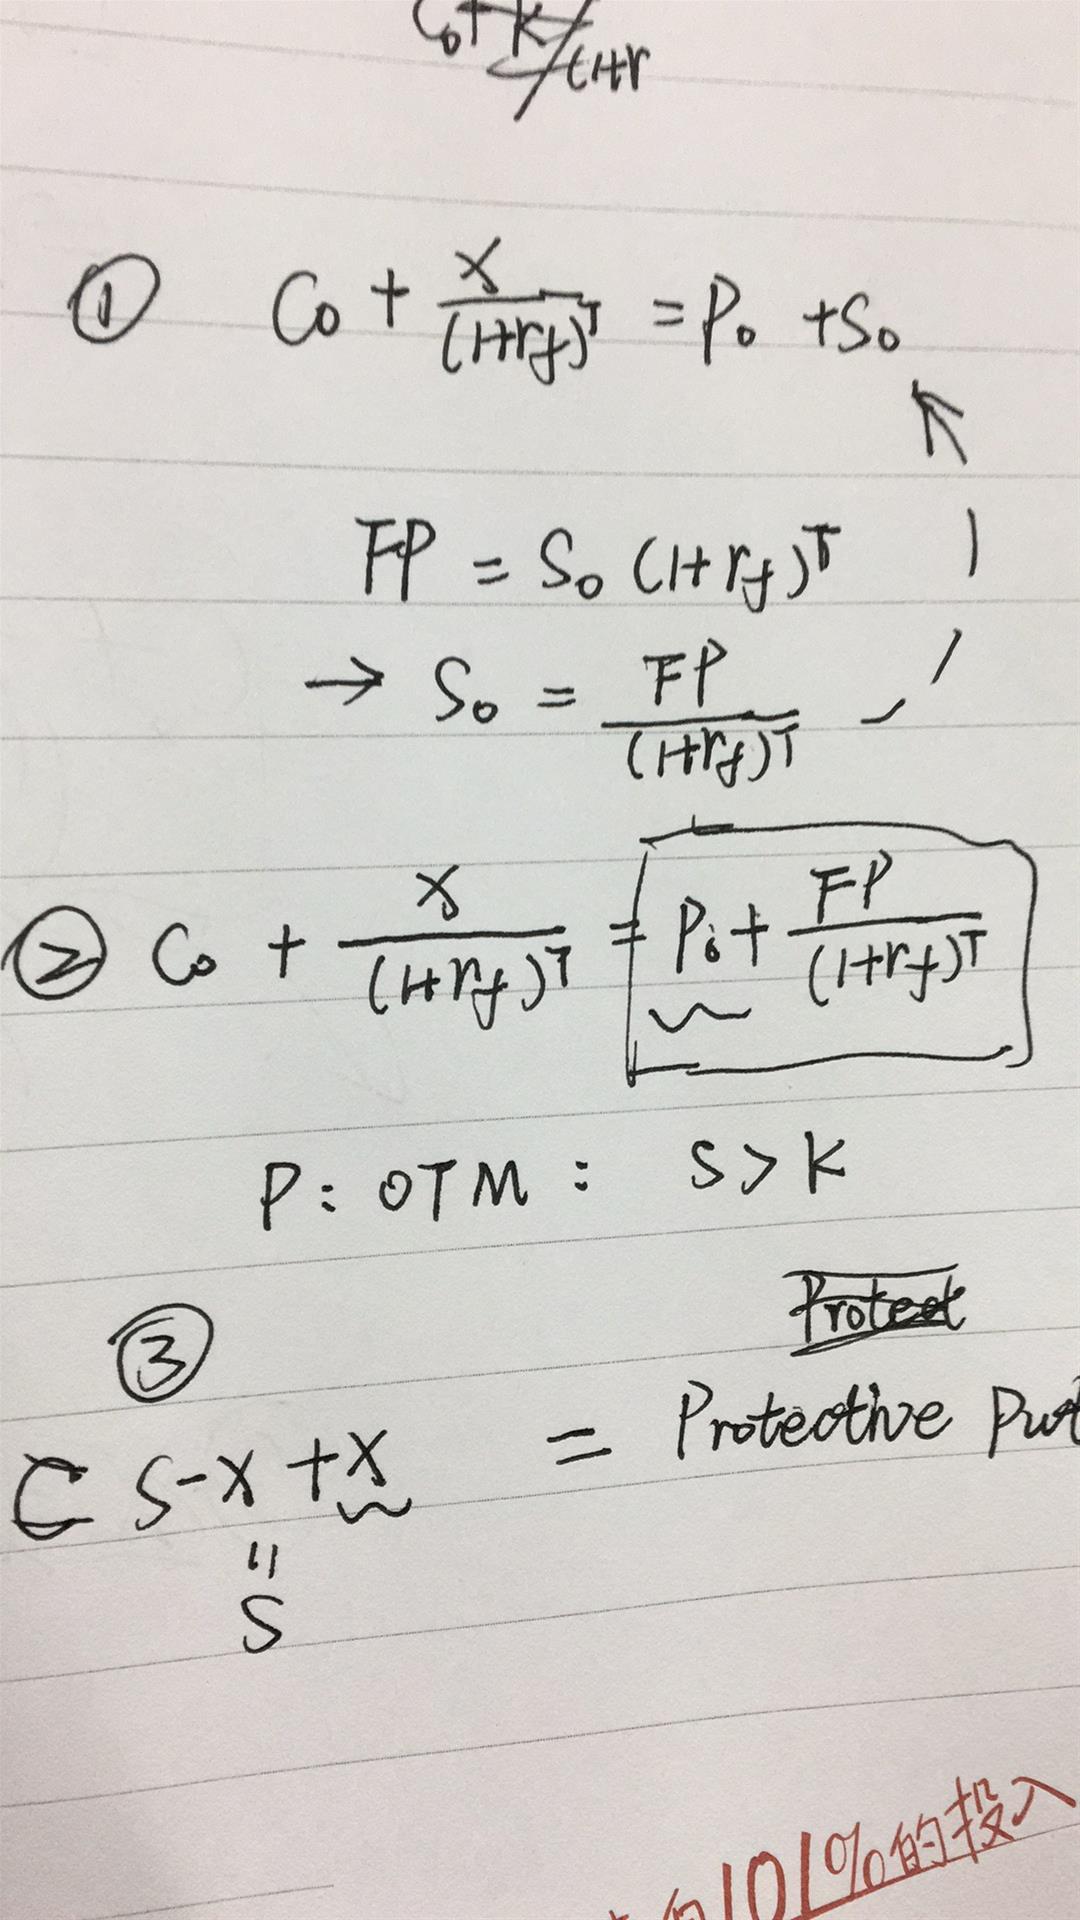 C₀ + K/(1+r
① C₀ + X/(1+rf)^T = P₀ + S₀
FP = S₀ (1+rf)^T
→ S₀ = FP/(1+rf)^T
② C₀ + X/(1+rf)^T = P₀ + FP/(1+rf)^T
P: OTM: S > K
③
Protect
C S-X+X = Protective Put
=
S
101%的投入